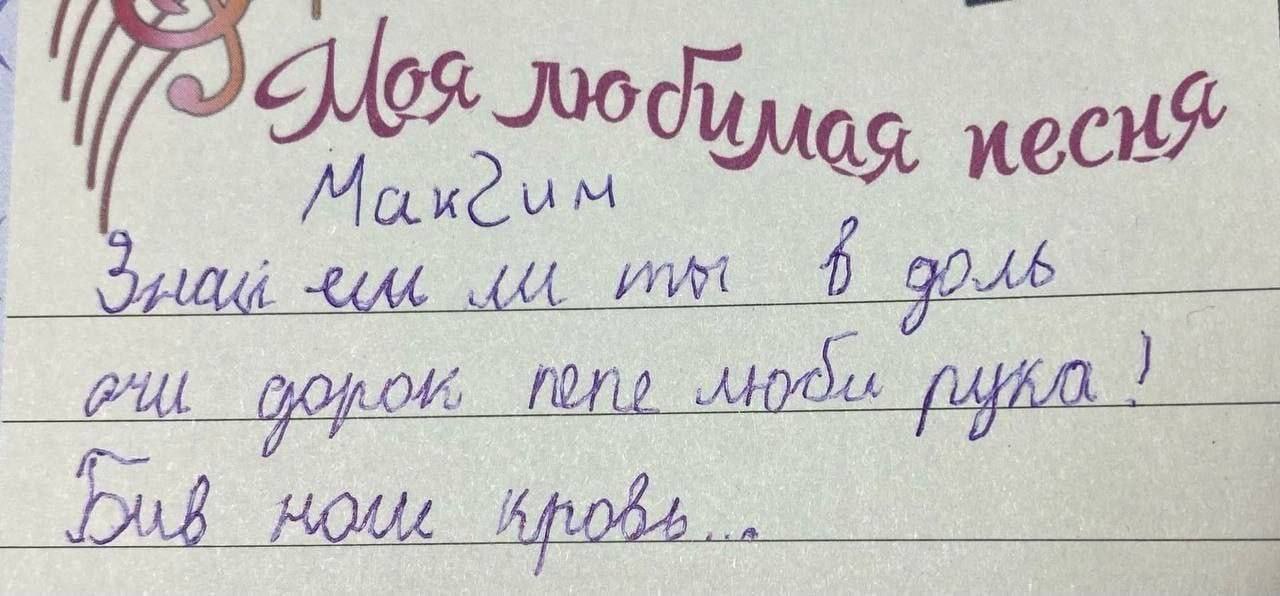 Моя любимая песня
МакSим
Знай еш ли ты в доль
очи дорок пепе люби рука!
Бив нош кровь...